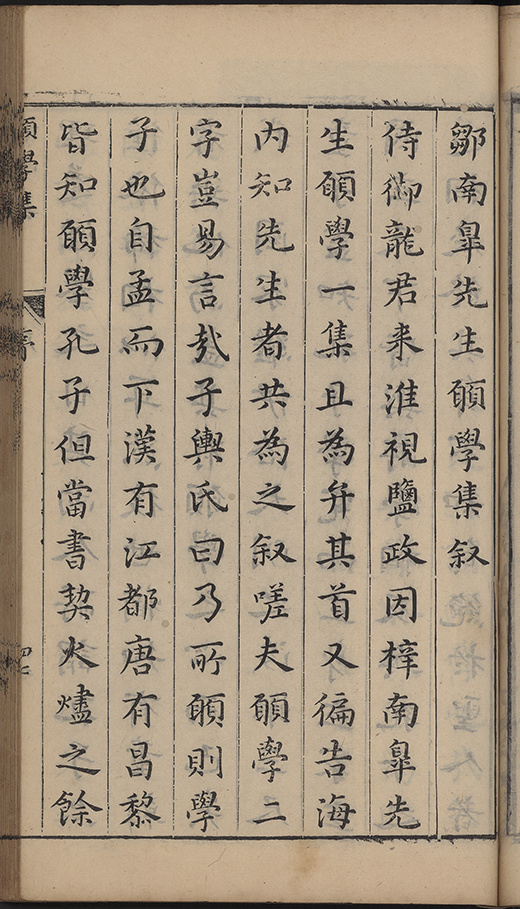 鄒南臯先生願學集叙
侍御龍君来淮視鹽政因梓南臯先
生願學一集且為弁其首又徧告海
内知先生者共為之叙嗟夫願學二
字豈易言㢤子輿氏曰乃所願則學
子也自孟而下漢有江都唐有昌黎
皆知願學孔子但當書契火燼之餘
願學集
序